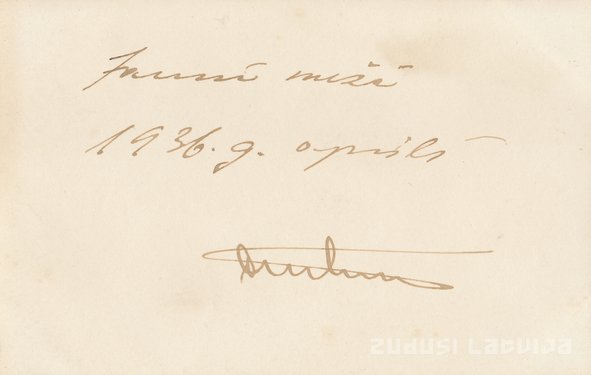 Jaunā mežā
1936. g. aprīlī
Zudusi Latvija